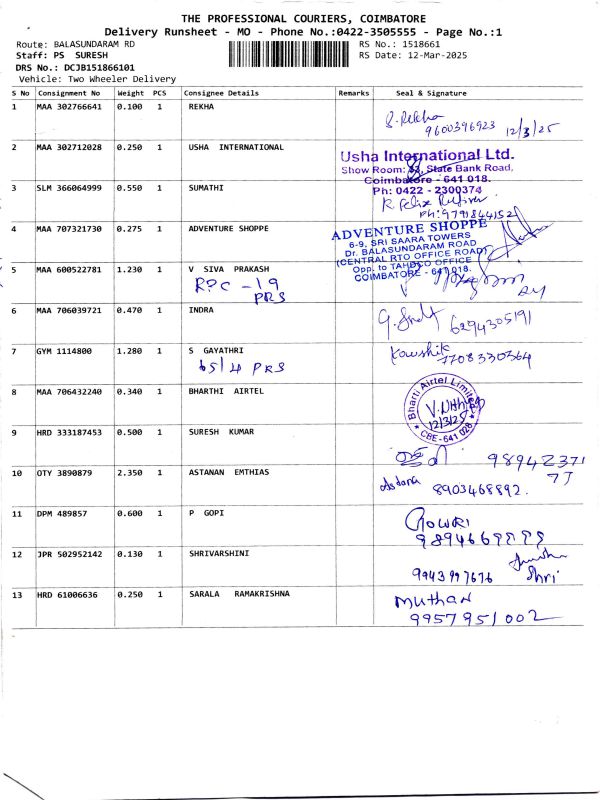 THE PROFESSIONAL COURIERS, COIMBATORE
Delivery Runsheet - MO - Phone No.:0422-3505555 - Page No.:1
Route: BALASUNDARAM RD RS No.: 1518661
Staff: PS SURESH RS Date: 12-Mar-2025
DRS No.: DCJB151866101
Vehicle: Two Wheeler Delivery
S No Consignment No Weight PCS Consignee Details Remarks Seal & Signature
1 MAA 302766641 0.100 1 REKHA
S. Rekha
9600396923 12/3/25
2 MAA 302712028 0.250 1 USHA INTERNATIONAL
Usha International Ltd.
Show Room: 33, State Bank Road,
Coimbatore - 641 018.
Ph: 0422 - 2300374
3 SLM 366064999 0.550 1 SUMATHI
Ph: 9791844152
4 MAA 707321730 0.275 1 ADVENTURE SHOPPE
ADVENTURE SHOPPE
6-9, SRI SAARA TOWERS
Dr. BALASUNDARAM ROAD
(CENTRAL RTO OFFICE ROAD)
Opp. to TAHDCO OFFICE
COIMBATORE - 641 018.
5 MAA 600522781 1.230 1 V SIVA PRAKASH
RPC - 19
PRS
6 MAA 706039721 0.470 1 INDRA
6294305191
7 GYM 1114800 1.280 1 S GAYATHRI
65/4 PRS
Kowshik
7708330364
8 MAA 706432240 0.340 1 BHARTHI AIRTEL
Bharti Airtel Limited
12/3/25
CBE - 641 028
9 HRD 333187453 0.500 1 SURESH KUMAR
98942371
77
10 OTY 3890879 2.350 1 ASTANAN EMTHIAS
Astana 8903468892.
11 DPM 489857 0.600 1 P GOPI
GOWRI
12 JPR 502952142 0.130 1 SHRIVARSHINI
9943997676 Shri
13 HRD 61006636 0.250 1 SARALA RAMAKRISHNA
Muthan
9957951002